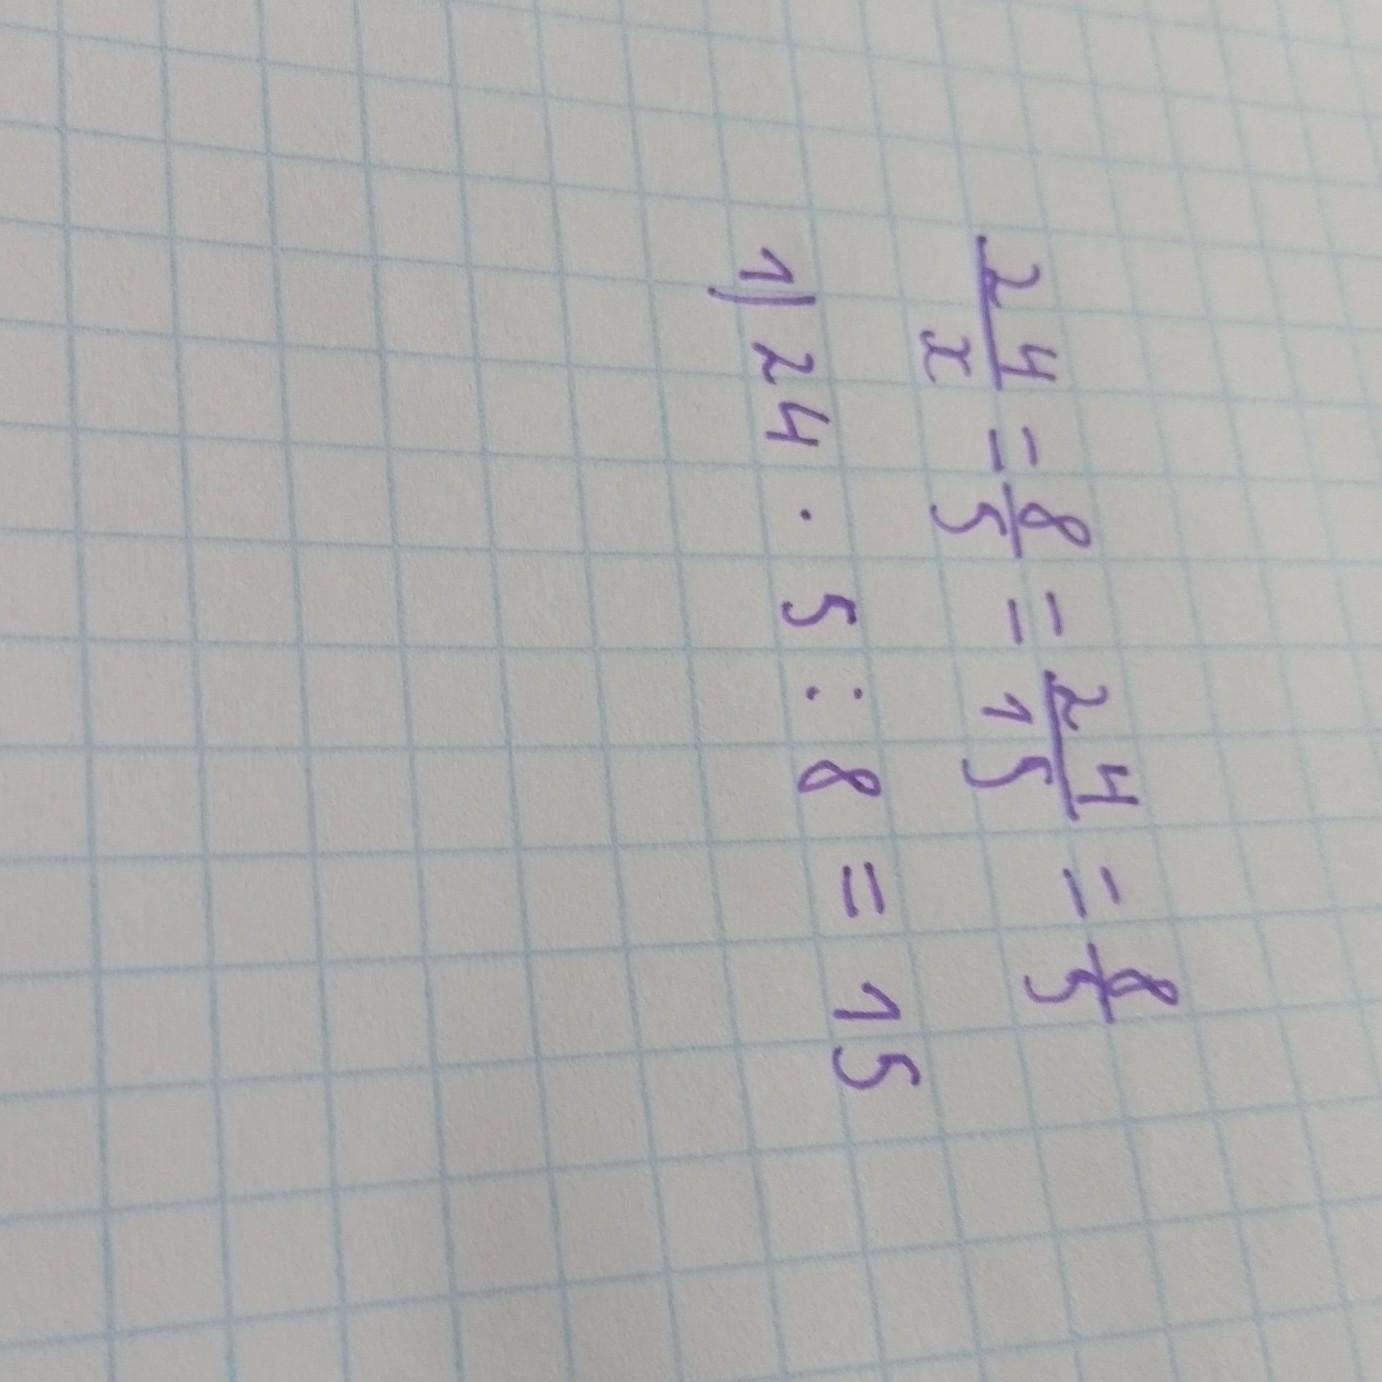 24/x = 8/5 = 24/15 = 8/5
1) 24 · 5 : 8 = 15